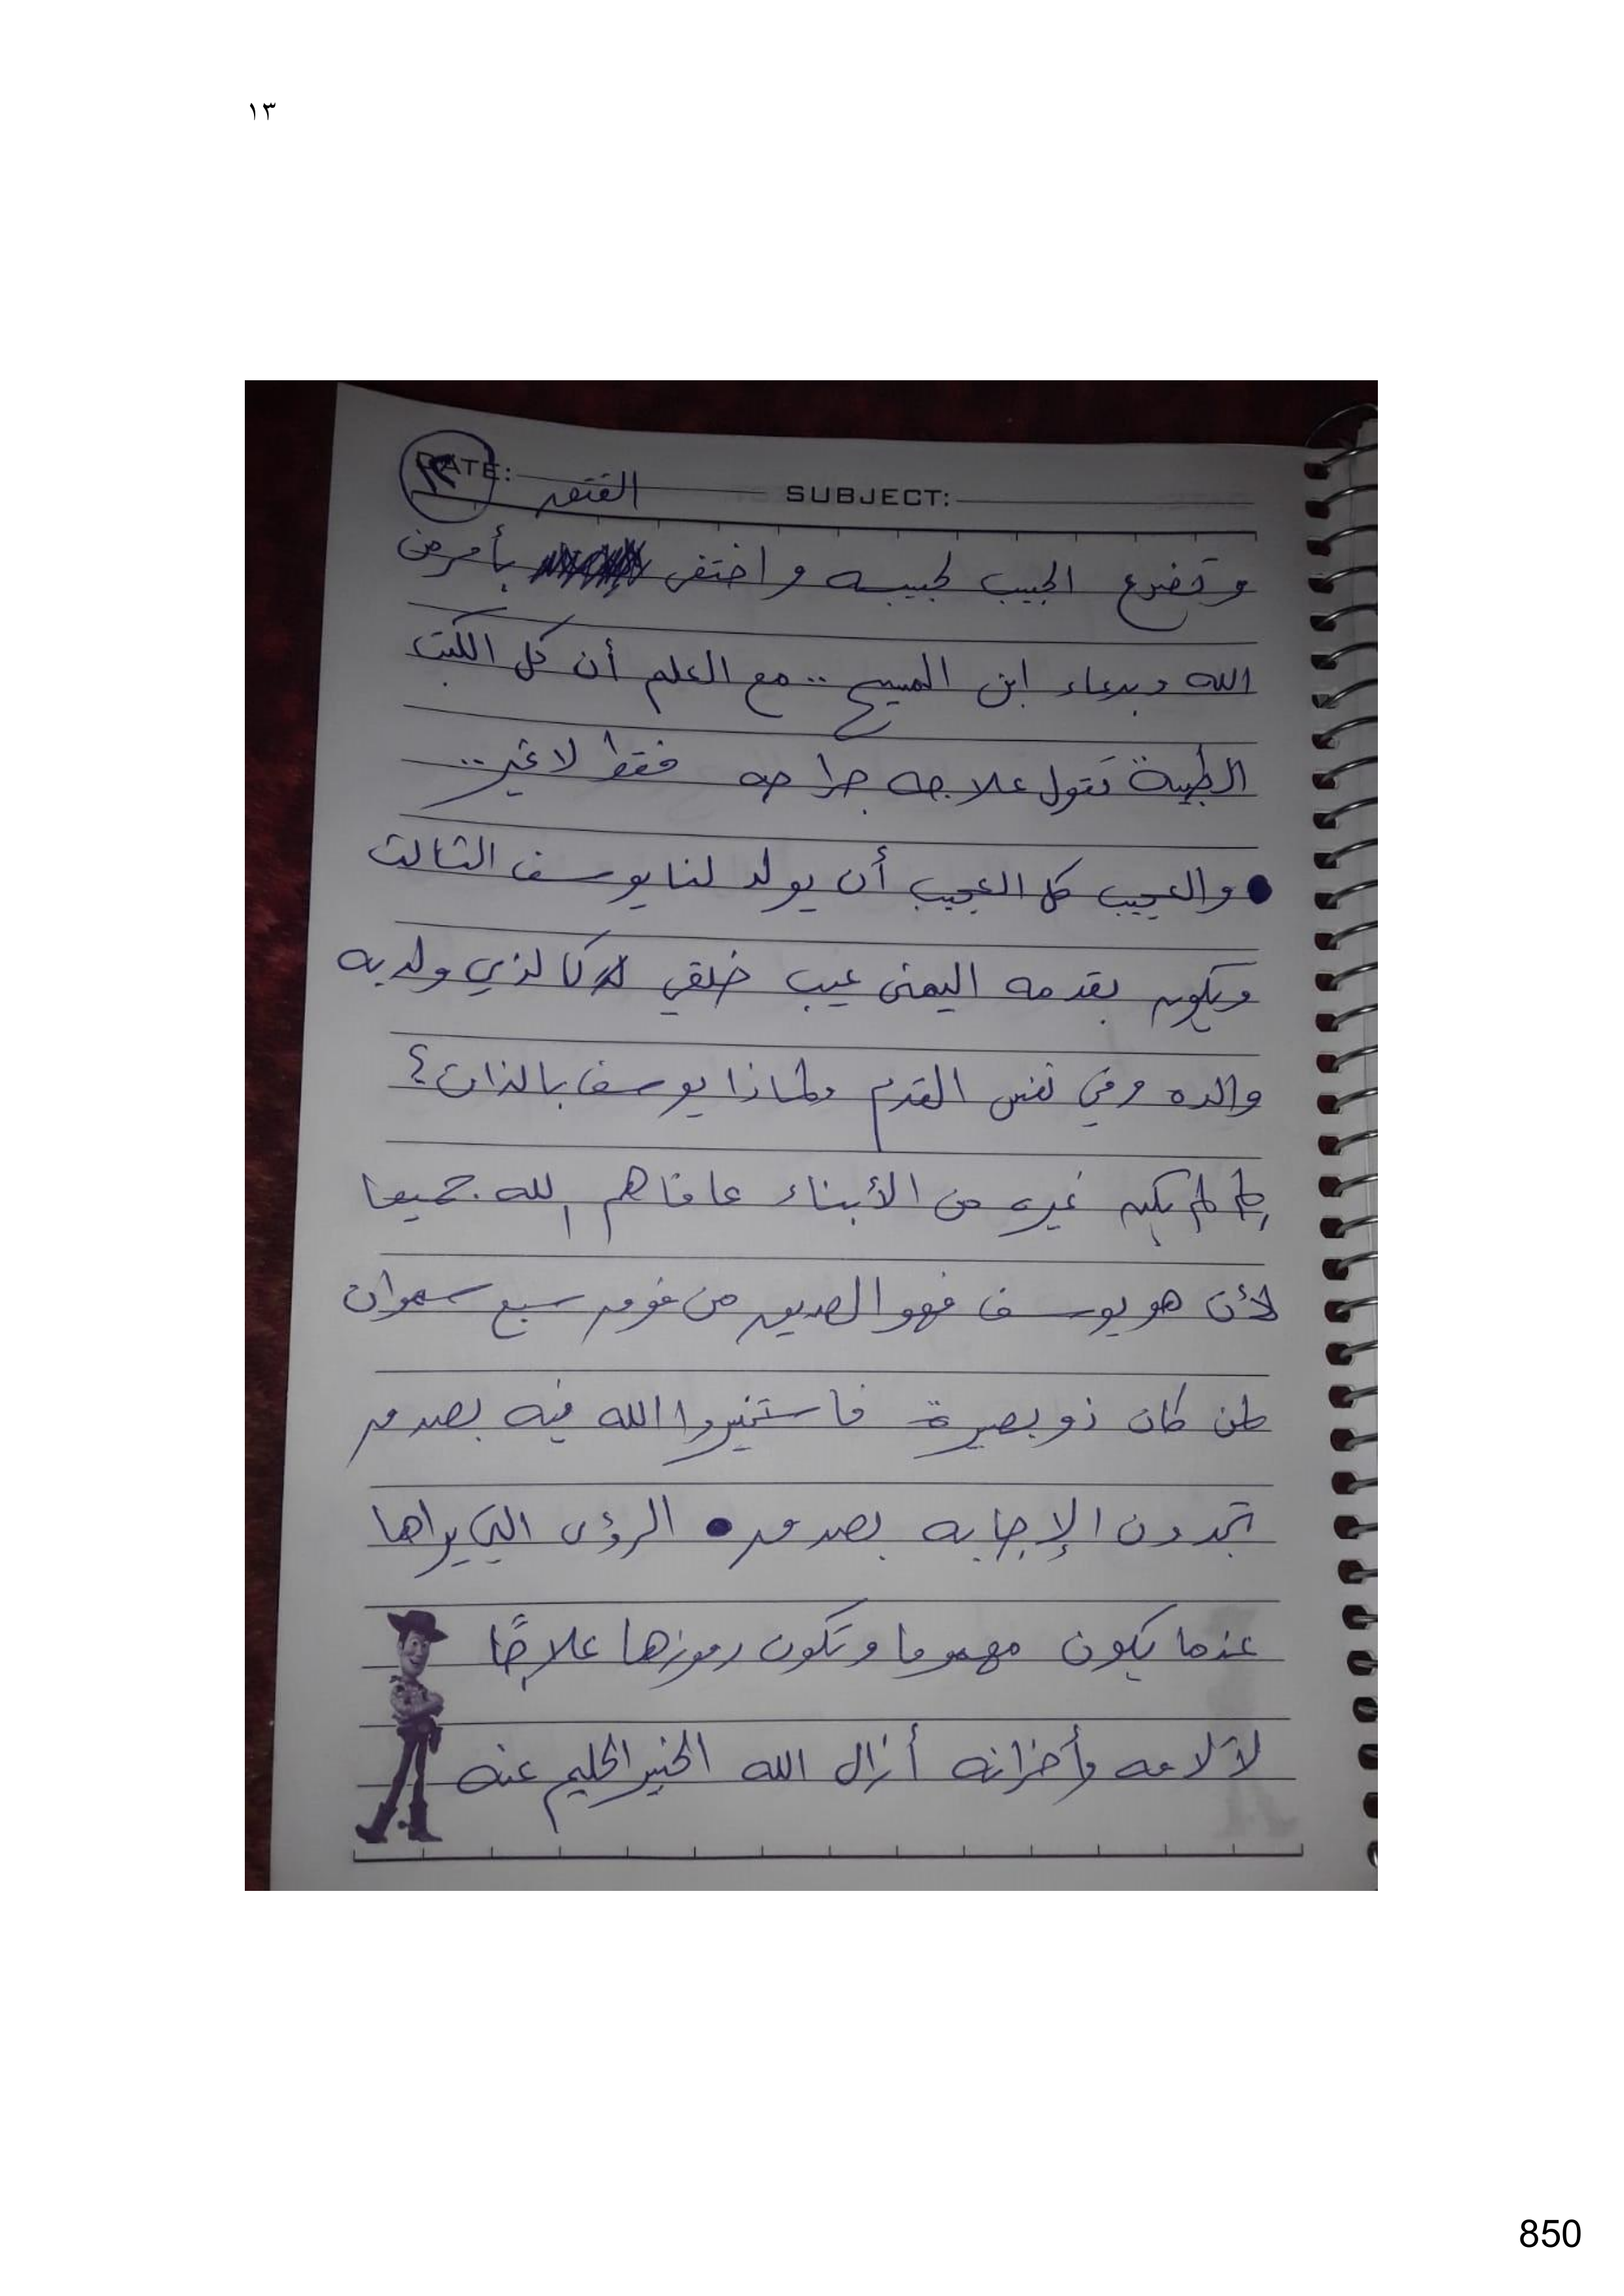 ١٣
DATE: ١٣ الفتق SUBJECT:
وتضرع الحبيب لحبيبه واختفى بأمر من
الله وبدعاء ابن المسيح .. مع العلم أن كل الكتب
الطبية تقول علاجه جراحه فقط لا غير ..
• والعجيب كل العجيب أن يولد لنا يوسف الثالث
ويكون بقدمه اليمنى عيب خلقي كالذي ولد به
والده وفي نفس القدم ولماذا يوسف بالذات؟
لم يكن غيره من الأبناء عافاهم الله جميعا
لأن هو يوسف فهو الصديق من فوق سبع سموات
لمن كان ذو بصيرة فاستخيروا الله فيه بصدق
تجدون الإجابه بصدق • الرؤى التي يراها
عندما يكون مهموما وتكون رموزها علاجًا
لآلامه وأحزانه أزال الله الخبير الحليم عنه
850